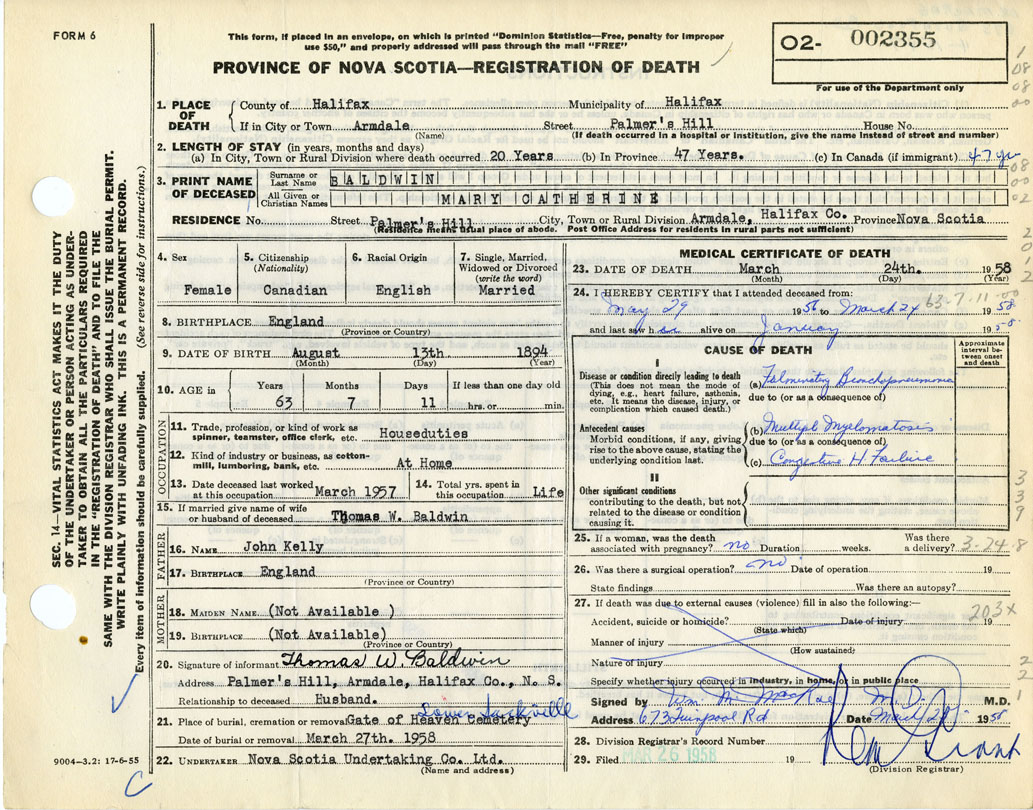 FORM 6
This form, if placed in an envelope, on which is printed "Dominion Statistics—Free, penalty for improper
use $50," and properly addressed will pass through the mail "FREE"
PROVINCE OF NOVA SCOTIA—REGISTRATION OF DEATH
02- 002355
For use of the Department only
1. PLACE OF DEATH
County of Halifax Municipality of Halifax
If in City or Town Armdale Street Palmer's Hill House No.
(Name) (If death occurred in a hospital or institution, give the name instead of street and number)
2. LENGTH OF STAY (in years, months and days)
(a) In City, Town or Rural Division where death occurred 20 Years (b) In Province 47 Years. (c) In Canada (if immigrant) 47 yrs
3. PRINT NAME OF DECEASED
Surname or Last Name BALDWIN
All Given or Christian Names MARY CATHERINE
RESIDENCE No. Street Palmer's Hill City, Town or Rural Division Armdale, Halifax Co. Province Nova Scotia
(Residence means usual place of abode. Post Office Address for residents in rural parts not sufficient)
4. Sex
Female
5. Citizenship
(Nationality)
Canadian
6. Racial Origin
English
7. Single, Married,
Widowed or Divorced
(write the word)
Married
8. BIRTHPLACE England
(Province or Country)
9. DATE OF BIRTH August 13th 1894
(Month) (Day) (Year)
10. AGE in
Years Months Days If less than one day old
63 7 11 hrs. or min.
OCCUPATION
11. Trade, profession, or kind of work as
spinner, teamster, office clerk, etc. Houseduties
12. Kind of industry or business, as cotton-
mill, lumbering, bank, etc. At Home
13. Date deceased last worked
at this occupation March 1957
14. Total yrs. spent in
this occupation Life
15. If married give name of wife
or husband of deceased Thomas W. Baldwin
FATHER
16. NAME John Kelly
17. BIRTHPLACE England
(Province or Country)
MOTHER
18. MAIDEN NAME (Not Available )
19. BIRTHPLACE (Not Available)
(Province or Country)
20. Signature of informant Thomas W. Baldwin
Address Palmer's Hill, Armdale, Halifax Co., N. S.
Relationship to deceased Husband.
Lower Sackville
21. Place of burial, cremation or removal Gate of Heaven Cemetery
Date of burial or removal March 27th. 1958
22. UNDERTAKER Nova Scotia Undertaking Co. Ltd.
(Name and address)
MEDICAL CERTIFICATE OF DEATH
23. DATE OF DEATH March 24th. 1958
(Month) (Day) (Year)
63-7-11-00
24. I HEREBY CERTIFY that I attended deceased from:
May 29 1956 to March 24 1958
and last saw h er alive on January 19
CAUSE OF DEATH
Approximate
interval be-
tween onset
and death
I
Disease or condition directly leading to death
(This does not mean the mode of
dying, e.g., heart failure, asthenia,
etc. It means the disease, injury, or
complication which caused death.)
(a) Fulminating Bronchopneumonia
due to (or as a consequence of)
Antecedent causes
Morbid conditions, if any, giving
rise to the above cause, stating the
underlying condition last.
(b) Multiple Myelomatosis
due to (or as a consequence of)
(c) Congestive H. Failure
II
Other significant conditions
contributing to the death, but not
related to the disease or condition
causing it.
25. If a woman, was the death
associated with pregnancy? no Duration weeks. Was there
a delivery? 3-24-8
26. Was there a surgical operation? no Date of operation 19
State findings Was there an autopsy?
27. If death was due to external causes (violence) fill in also the following:—
203x
Accident, suicide or homicide? Date of injury 19
(State which)
Manner of injury
(How sustained)
Nature of injury
Specify whether injury occurred in industry, in home, or in public place
Signed by Wm M MacRae M.D. M.D.
Address 673 Quinpool Rd Date March 1958
28. Division Registrar's Record Number
29. Filed MAR 26 1958 19
(Division Registrar)
SEC. 14—VITAL STATISTICS ACT MAKES IT THE DUTY
OF THE UNDERTAKER OR PERSON ACTING AS UNDER-
TAKER TO OBTAIN ALL THE PARTICULARS REQUIRED
IN THE "REGISTRATION OF DEATH" AND TO FILE THE
SAME WITH THE DIVISION REGISTRAR WHO SHALL ISSUE THE BURIAL PERMIT.
WRITE PLAINLY WITH UNFADING INK. THIS IS A PERMANENT RECORD.
Every item of information should be carefully supplied. (See reverse side for instructions.)
9004-3.2: 17-6-55
C
1
08
08
00
08
00
02
2
0
1
2
3
3
9
2
2
1